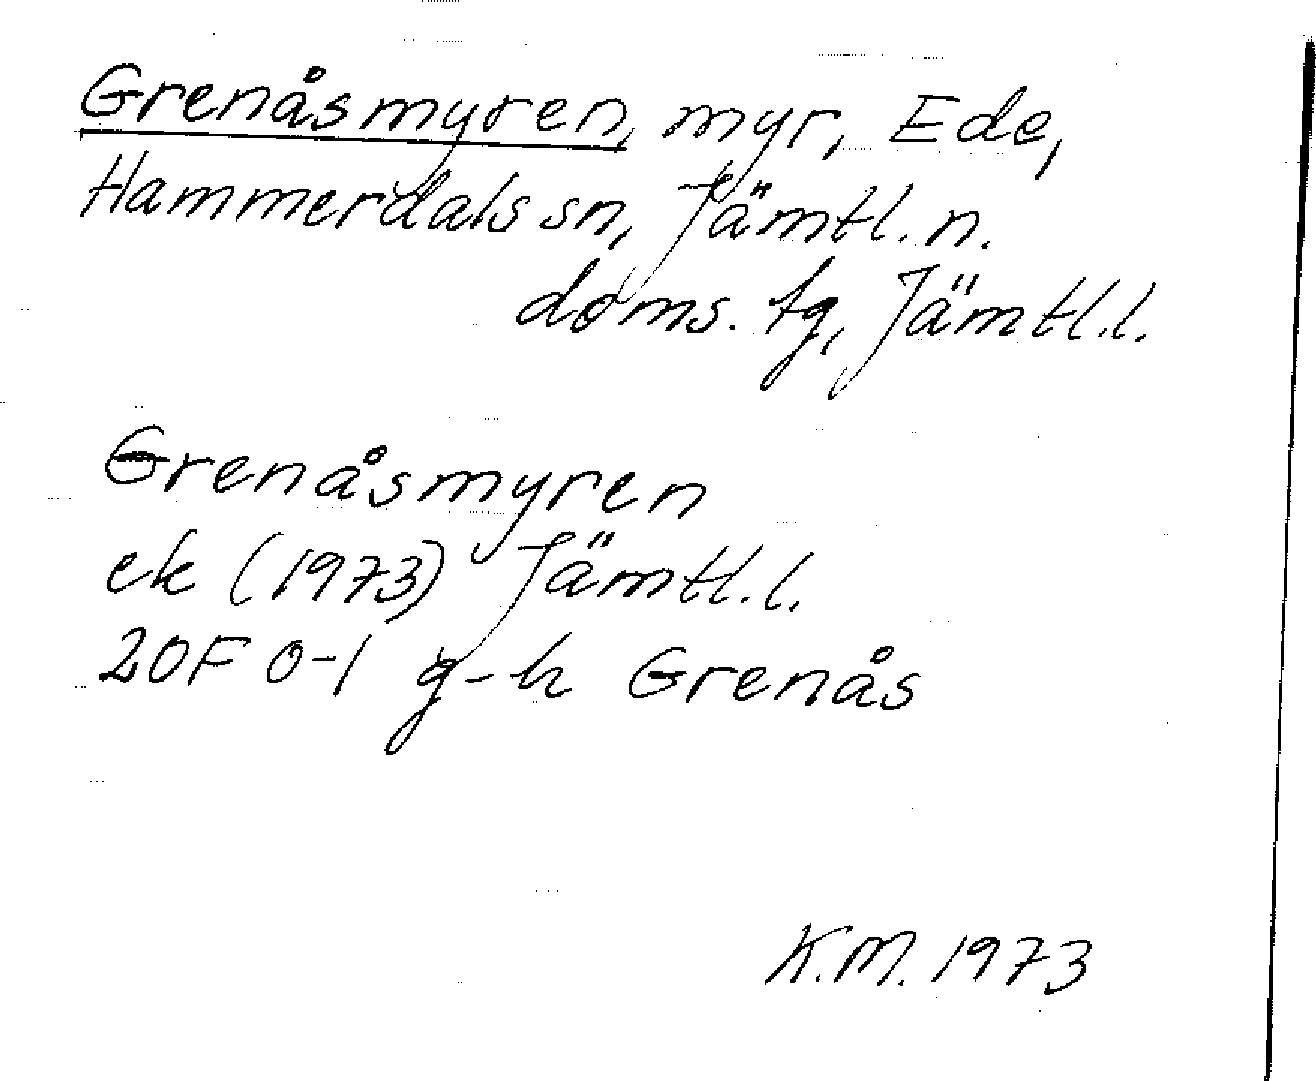 Grenåsmyren, myr, Ede,
Hammerdals sn, Jämtl. n.
doms. tg, Jämtl. l.
Grenåsmyren
ek (1973) Jämtl. l.
20F 0-1 g-h Grenås
K.M. 1973